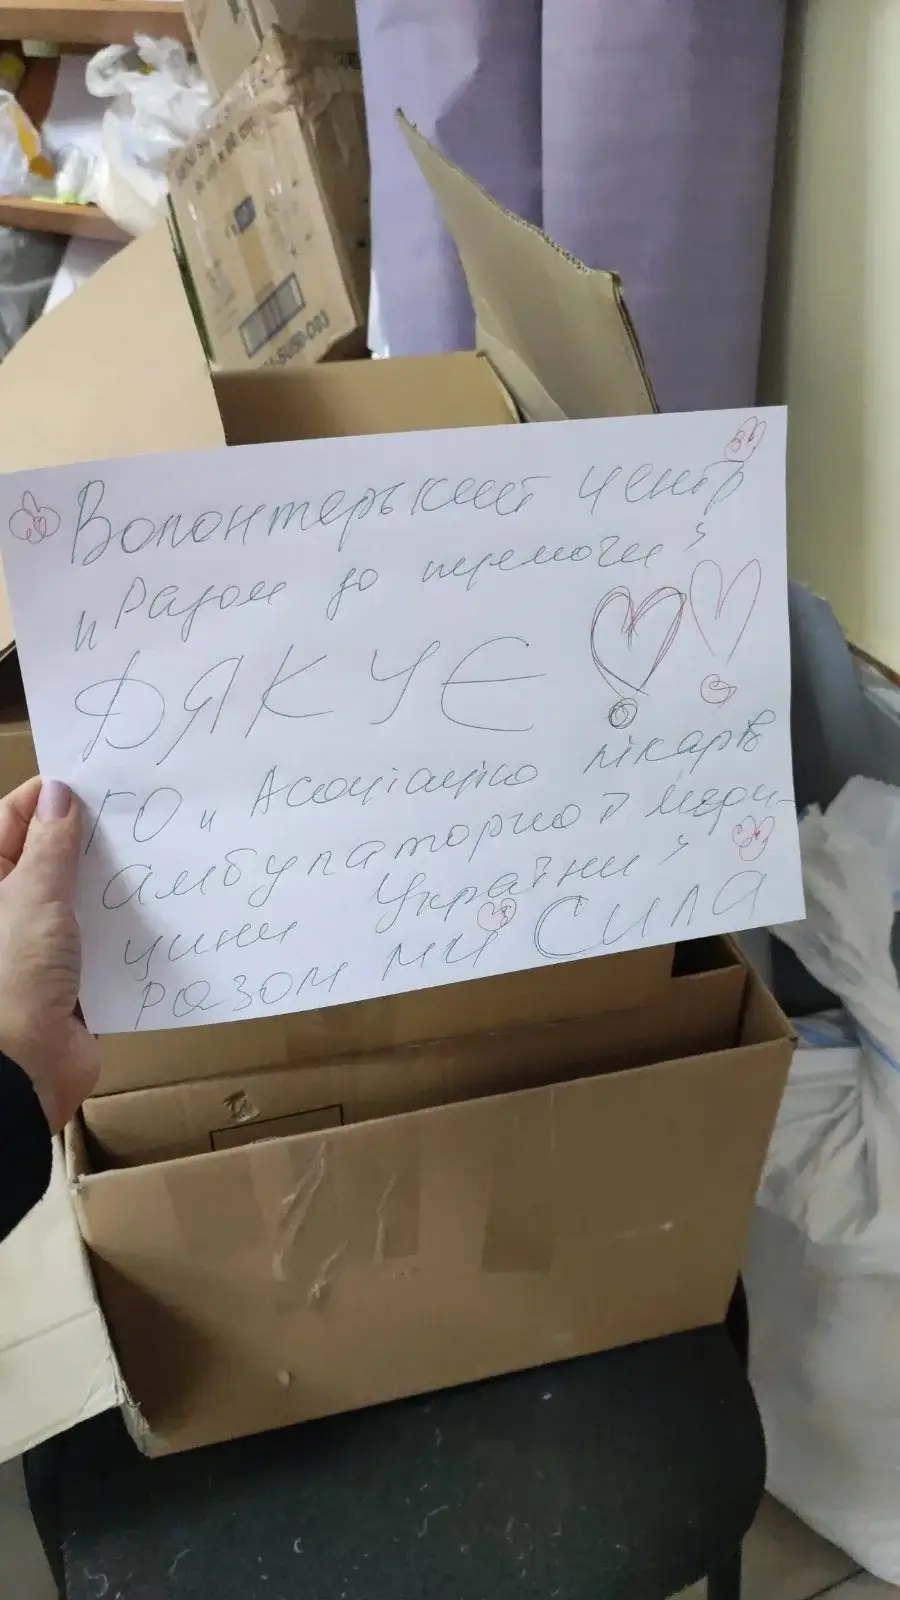 Волонтерський центр
"Разом до перемоги"
ДЯКУЄ
ГО "Асоціацію лікарів
амбулаторної меди-
цини України"
разом ми Сила